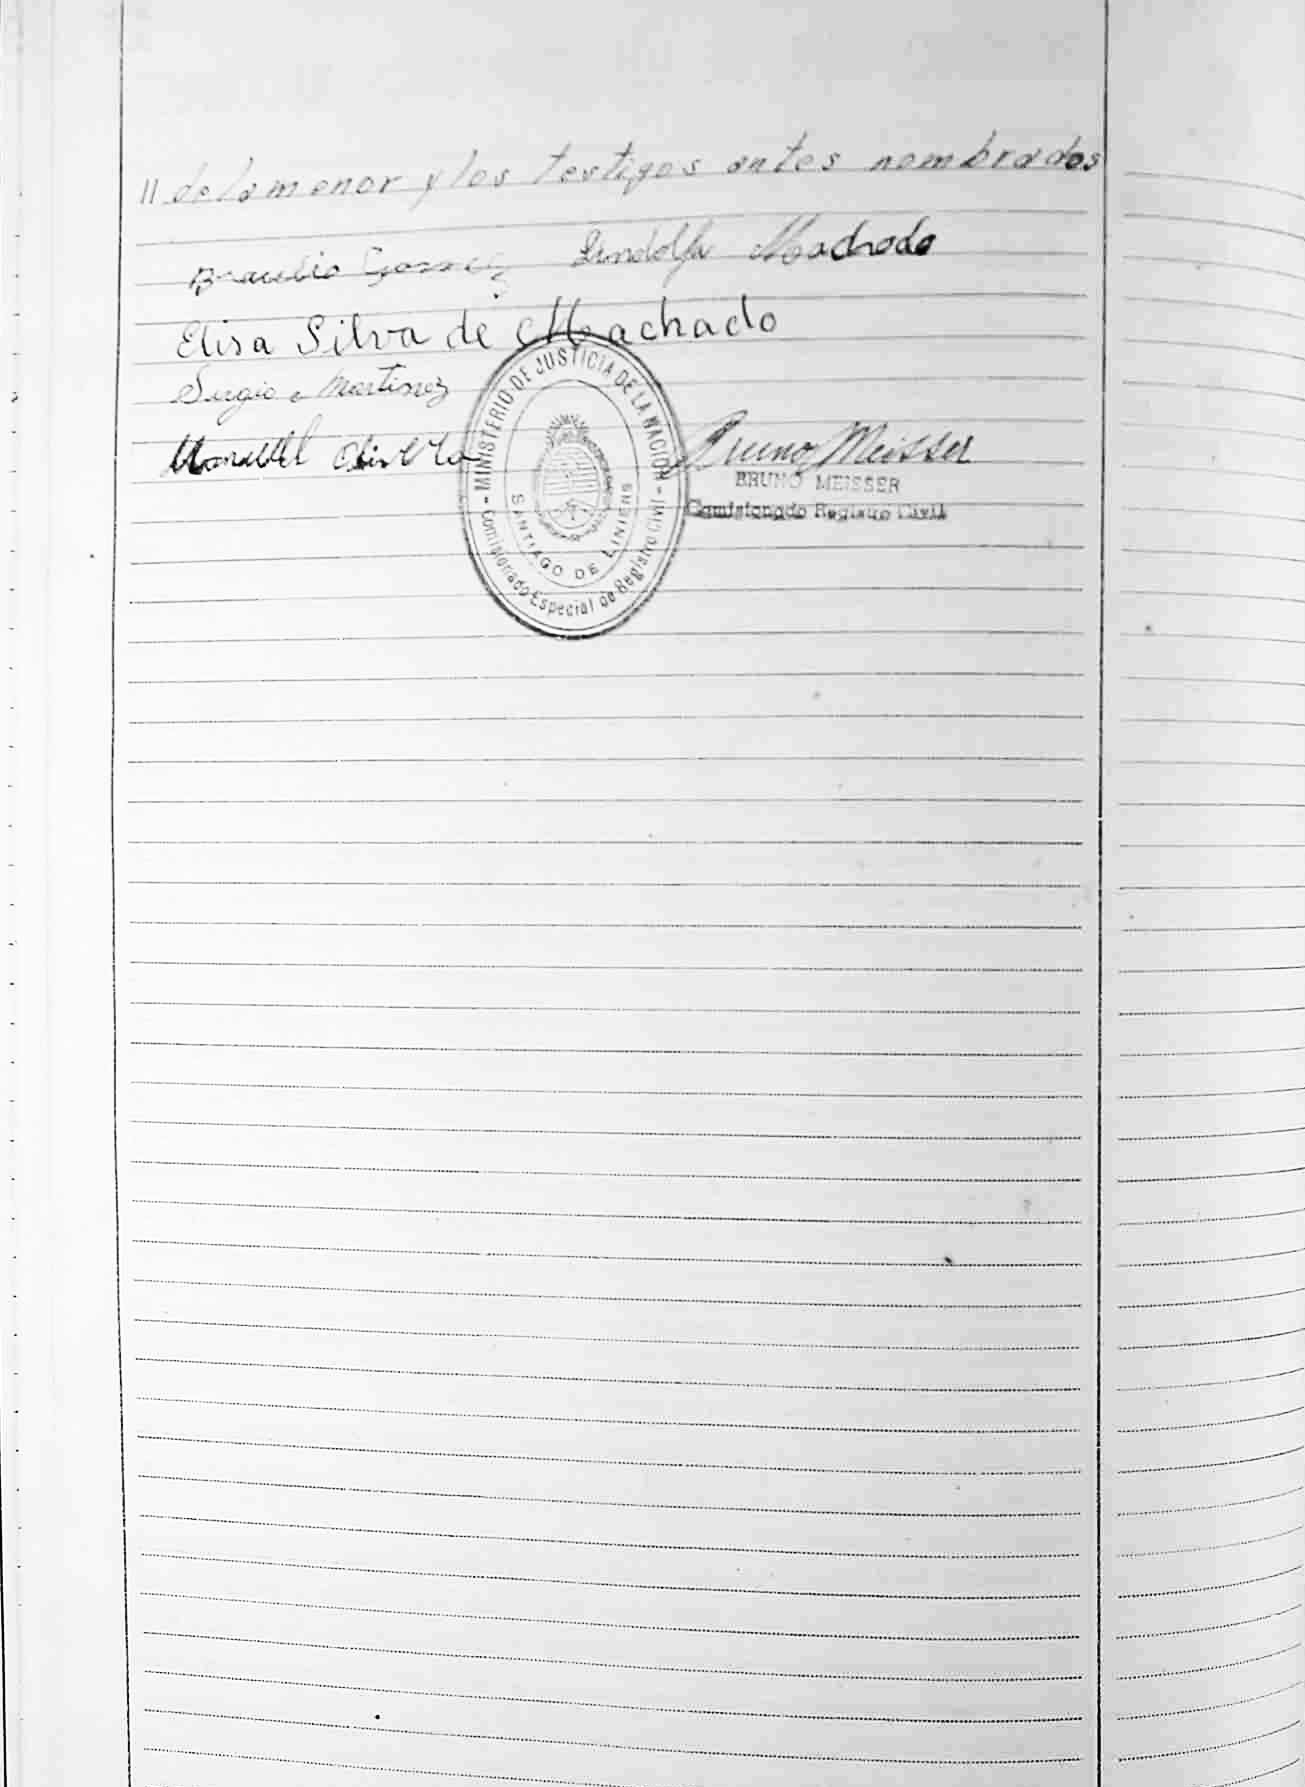 // de la menor y los testigos antes nombrados
Braulio Gomez Lindolfo Machado
Elisa Silva de Machado
Sergio Martinez
Manuel Olivera
Bruno Meisser
BRUNO MEISSER
Comisionado Registro Civil
- MINISTERIO DE JUSTICIA DE LA NACION -
SANTIAGO DE LINIERS
Comisionado Especial de Registro Civil